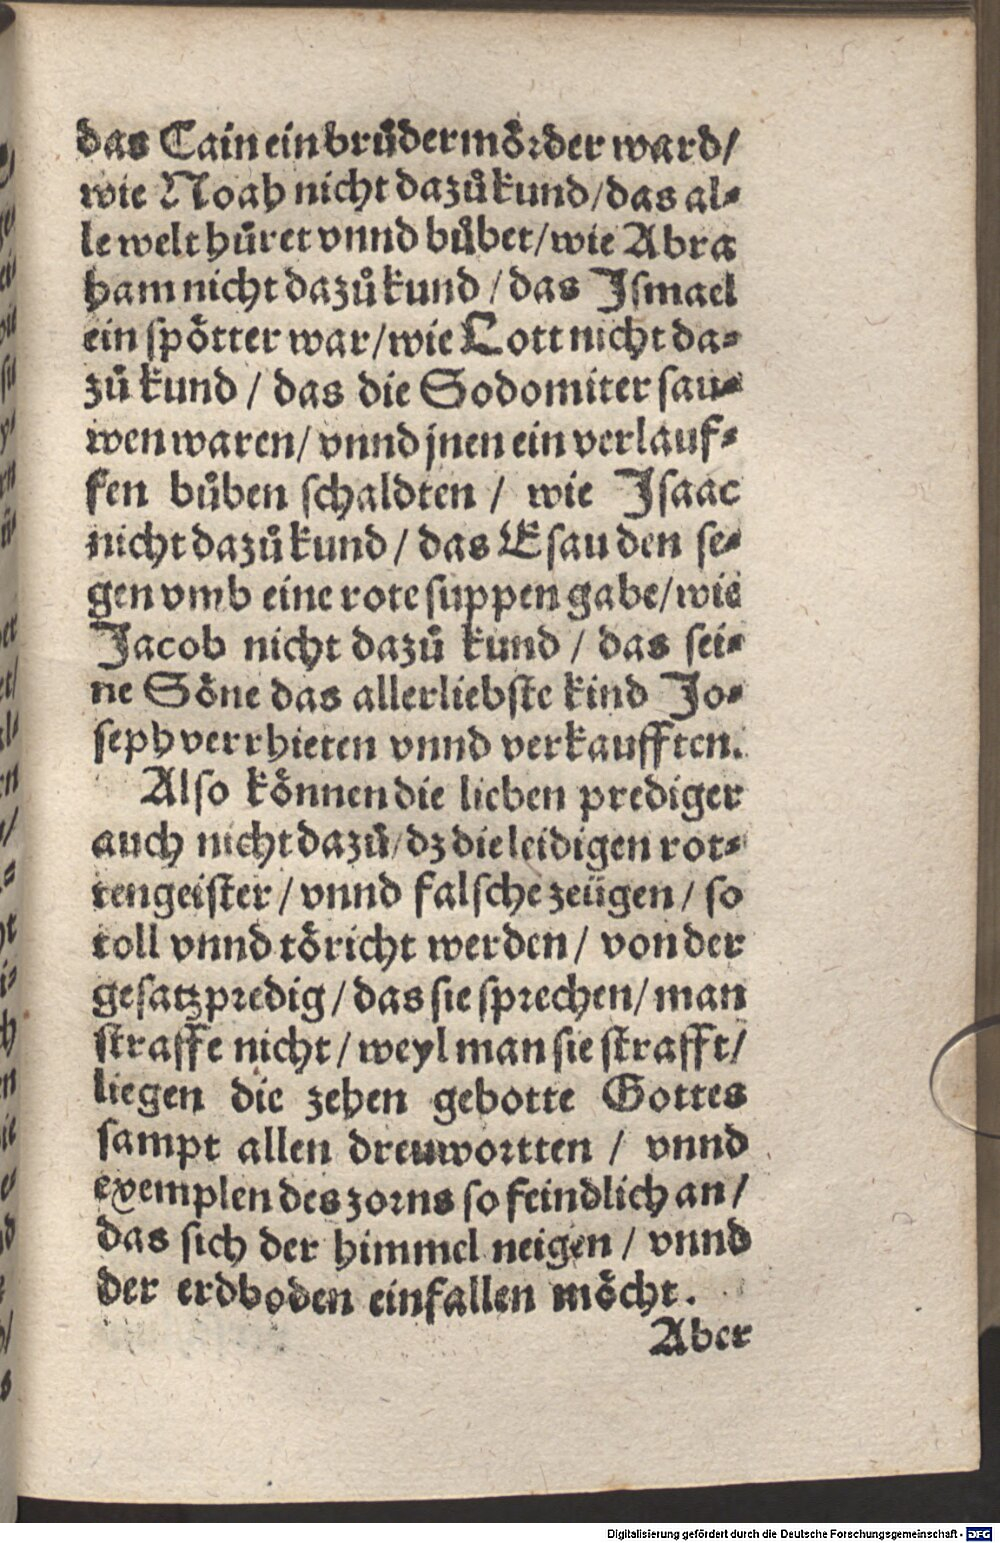 das Cain ein brůdermörder ward/
wie Noah nicht dazů kund/das al⸗
le welt hůret vnnd bůbet/wie Abra
ham nicht dazů kund/das Ismael
ein spötter war/wie Lott nicht da⸗
zů kund/das die Sodomiter sau⸗
wen waren/vnnd jnen ein verlauf⸗
fen bůben schaldten/wie Isaac
nicht dazů kund/das Esau den se⸗
gen vmb eine rote suppen gabe/wie
Jacob nicht dazů kund/das sei⸗
ne Söne das allerliebste kind Jo⸗
seph verrhieten vnnd verkaufften.
Also können die lieben prediger
auch nicht dazů/dz die leidigen rot⸗
tengeister/vnnd falsche zeügen/so
toll vnnd töricht werden/von der
gesatzpredig/das sie sprechen/man
straffe nicht/weyl man sie strafft/
liegen die zehen gebotte Gottes
sampt allen dreuwortten/vnnd
exemplen des zorns so feindlich an/
das sich der himmel neigen/vnnd
der erdboden einfallen möcht.
Aber
Digitalisierung gefördert durch die Deutsche Forschungsgemeinschaft - DFG